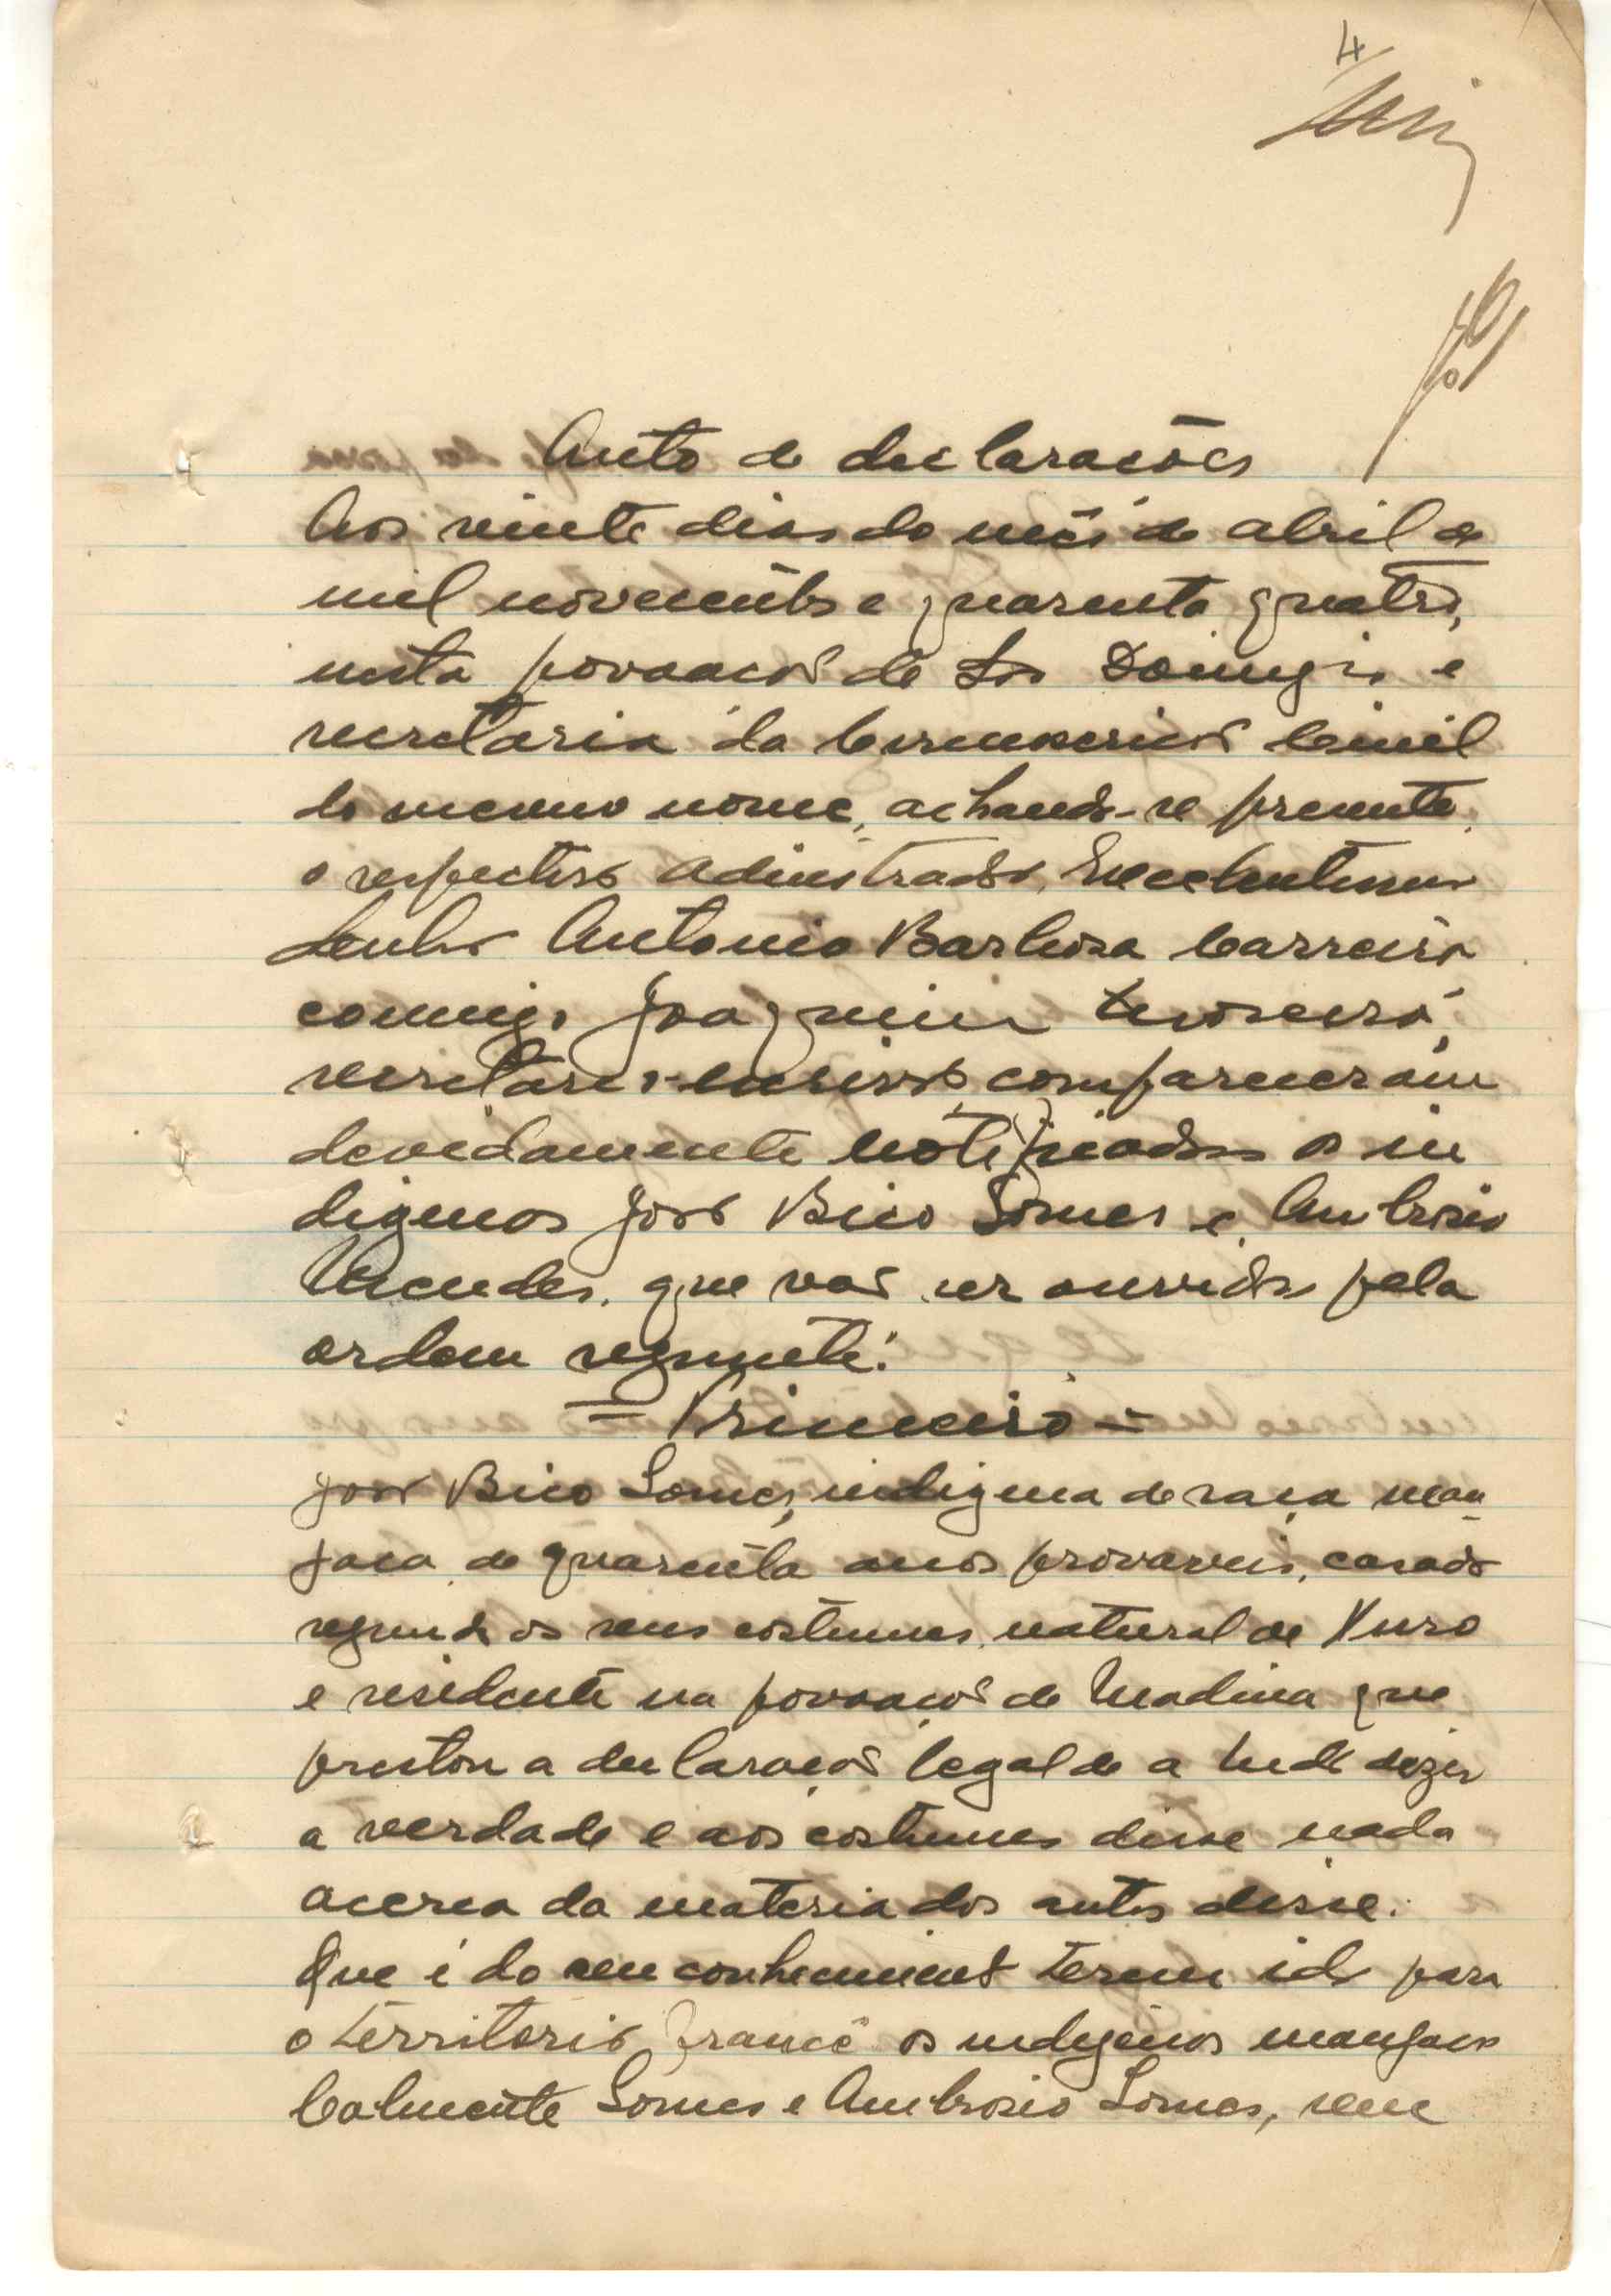 4
Auto de declarações
Aos vinte dias do mês de abril de
mil novecentos e quarenta quatro,
nesta povoação de São Domingos e
secretaria da Circunscrição Civil
do mesmo nome, achando-se presente
o respectivo administrador, Excelentissimo
Senhor Antonio Barbosa Carreira
comigo Joaquim
secretario-escrivão compareceram
devidamente notificados os in
digenas José Bico Gomes e Ambrosio
Mendes, que vão ser ouvidos pela
ordem seguinte:
— Primeiro —
José Bico Gomes, indigena de raça man
jaca, de quarenta anos provaveis, casado
segundo os seus costumes, natural de
e residente na povoação de Madina que
prestou a declaração legal de a tudo dizer
a verdade e aos costumes disse nada
acerca da materia dos autos disse:
Que é do seu conhecimento terem ido para
o territorio francê os indigenas manjacos
Gomes e Ambrosio Gomes, sem